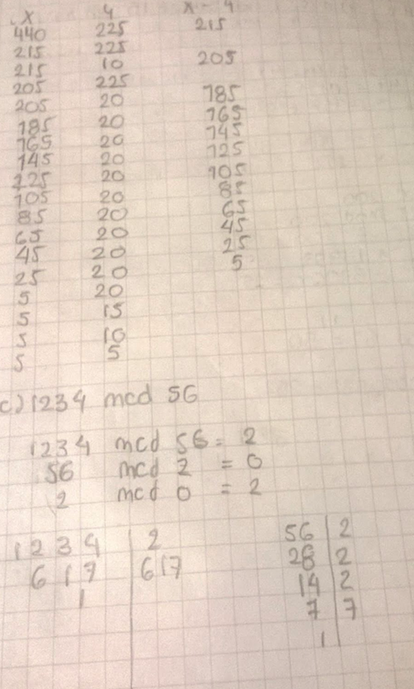 x y x - y
440 225 215
215 225
215 10 205
205 225
205 20 185
185 20 165
165 20 145
145 20 125
125 20 105
105 20 85
85 20 65
65 20 45
45 20 25
25 20 5
5 20
5 15
5 10
5 5
c) 1234 mcd 56
1234 mcd 56 = 2
56 mcd 2 = 0
2 mcd 0 = 2
1234 2 56 2
617 617 28 2
1 14 2
7 7
1